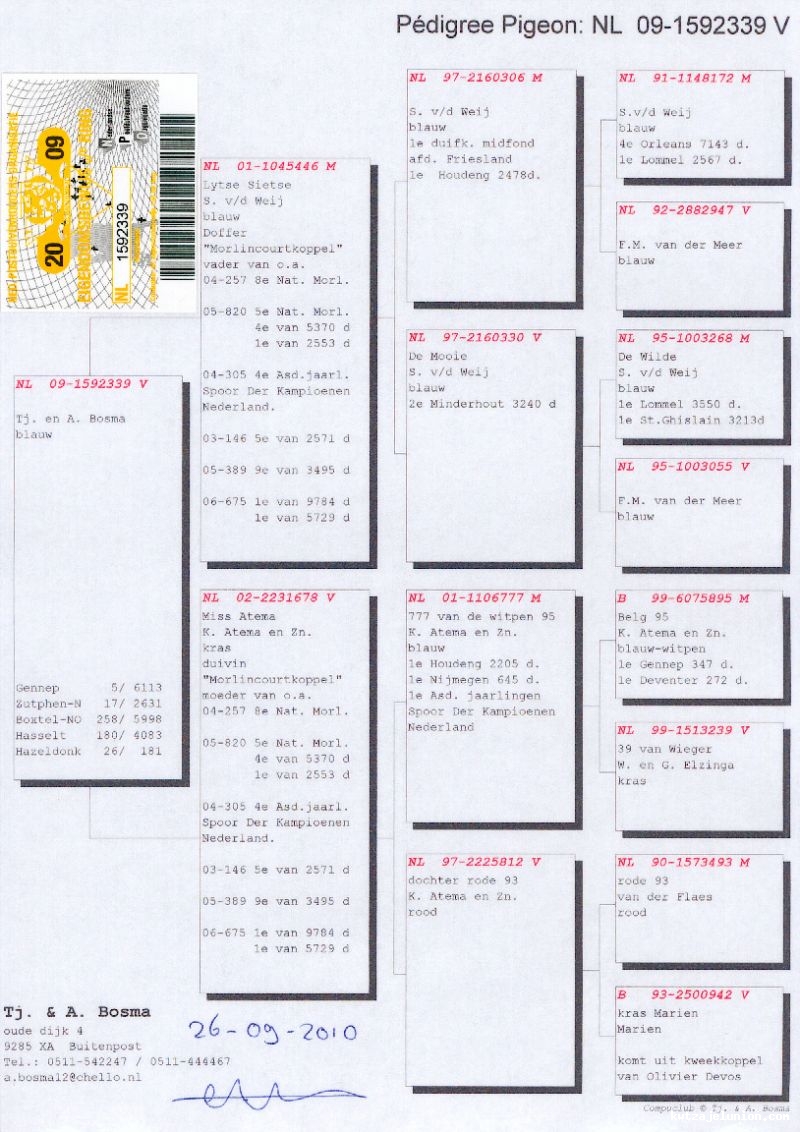 Pédigree Pigeon: NL 09-1592339 V
20 09
NL 1592339
NL 09-1592339 V
Tj. en A. Bosma
blauw
Gennep 5/ 6113
Zutphen-N 17/ 2631
Boxtel-NO 258/ 5998
Hasselt 180/ 4083
Hazeldonk 26/ 181
NL 01-1045446 M
Lytse Sietse
S. v/d Weij
blauw
Doffer
"Morlincourtkoppel"
vader van o.a.
04-257 8e Nat. Morl.
05-820 5e Nat. Morl.
4e van 5370 d
1e van 2553 d
04-305 4e Asd.jaarl.
Spoor Der Kampioenen
Nederland.
03-146 5e van 2571 d
05-389 9e van 3495 d
06-675 1e van 9784 d
1e van 5729 d
NL 02-2231678 V
Miss Atema
K. Atema en Zn.
kras
duivin
"Morlincourtkoppel"
moeder van o.a.
04-257 8e Nat. Morl.
05-820 5e Nat. Morl.
4e van 5370 d
1e van 2553 d
04-305 4e Asd.jaarl.
Spoor Der Kampioenen
Nederland.
03-146 5e van 2571 d
05-389 9e van 3495 d
06-675 1e van 9784 d
1e van 5729 d
NL 97-2160306 M
S. v/d Weij
blauw
1e duifk. midfond
afd. Friesland
1e Houdeng 2478d.
NL 97-2160330 V
De Mooie
S. v/d Weij
blauw
2e Minderhout 3240 d
NL 01-1106777 M
777 van de witpen 95
K. Atema en Zn.
blauw
1e Houdeng 2205 d.
1e Nijmegen 645 d.
1e Asd. jaarlingen
Spoor Der Kampioenen
Nederland
NL 97-2225812 V
dochter rode 93
K. Atema en Zn.
rood
NL 91-1148172 M
S.v/d Weij
blauw
4e Orleans 7143 d.
1e Lommel 2567 d.
NL 92-2882947 V
F.M. van der Meer
blauw
NL 95-1003268 M
De Wilde
S. v/d Weij
blauw
1e Lommel 3550 d.
1e St.Ghislain 3213d
NL 95-1003055 V
F.M. van der Meer
blauw
B 99-6075895 M
Belg 95
K. Atema en Zn.
blauw-witpen
1e Gennep 347 d.
1e Deventer 272 d.
NL 99-1513239 V
39 van Wieger
W. en G. Elzinga
kras
NL 90-1573493 M
rode 93
van der Flaes
rood
B 93-2500942 V
kras Marien
Marien
komt uit kweekkoppel
van Olivier Devos
Tj. & A. Bosma
oude dijk 4
9285 XA Buitenpost
Tel.: 0511-542247 / 0511-444467
a.bosma12@chello.nl
26-09-2010
Compuclub © Tj. & A. Bosma